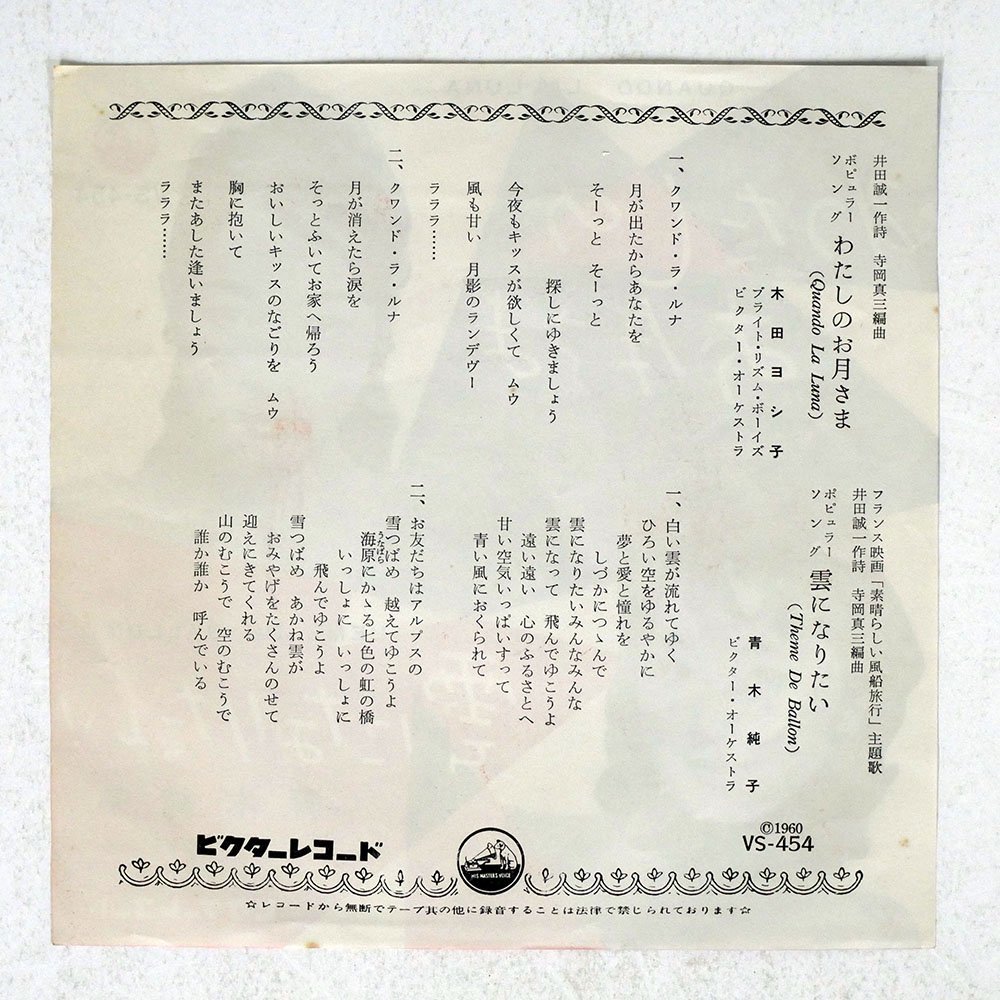 井田誠一作詩 寺岡真三編曲
ポピュラーソング わたしのお月さま
(Quando La Luna)
木田ヨシ子
ブライト・リズム・ボーイズ
ビクター・オーケストラ
一、クワンド・ラ・ルナ
月が出たからあなたを
そーっと そーっと
探しにゆきましょう
今夜もキッスが欲しくて ムウ
風も甘い 月影のランデヴー
ラララ……
二、クワンド・ラ・ルナ
月が消えたら涙を
そっとふいてお家へ帰ろう
おいしいキッスのなごりを ムウ
胸に抱いて
またあした逢いましょう
ラララ……
フランス映画「素晴らしい風船旅行」主題歌
井田誠一作詩 寺岡真三編曲
ポピュラーソング 雲になりたい
(Theme De Ballon)
青木純子
ビクター・オーケストラ
一、白い雲が流れてゆく
ひろい空をゆるやかに
夢と愛と憧れを
しづかにつゝんで
雲になりたいみんなみんな
雲になって 飛んでゆこうよ
遠い遠い 心のふるさとへ
甘い空気いっぱいすって
青い風におくられて
二、お友だちはアルプスの
雪つばめ 越えてゆこうよ
海原にかゝる七色の虹の橋
うなばら
いっしょに いっしょに
飛んでゆこうよ
雪つばめ あかね雲が
おみやげをたくさんのせて
迎えにきてくれる
山のむこうで 空のむこうで
誰か誰か 呼んでいる
©1960
VS-454
ビクターレコード
HIS MASTER'S VOICE
☆レコードから無断でテープ其の他に録音することは法律で禁じられております☆